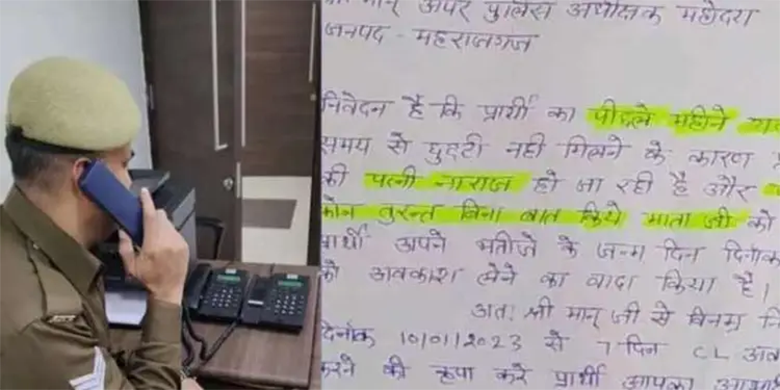 मान् अपर पुलिस अधीक्षक महोदय
जनपद - महराजगंज
निवेदन है कि प्रार्थी का पीछले महीने
समय से छुट्टी नही मिलने के कारण
की पत्नी नाराज हो जा रही है और
फोन तुरन्त बिना बात किये माता जी को
प्रार्थी अपने भतीजे के जन्म दिन दिनांक
को अवकाश लेने का वादा किया है।
अत: श्री मान् जी से विनम्र
दिनांक 10/01/2023 से 7 दिन CL
करने की कृपा करे प्रार्थी आपका